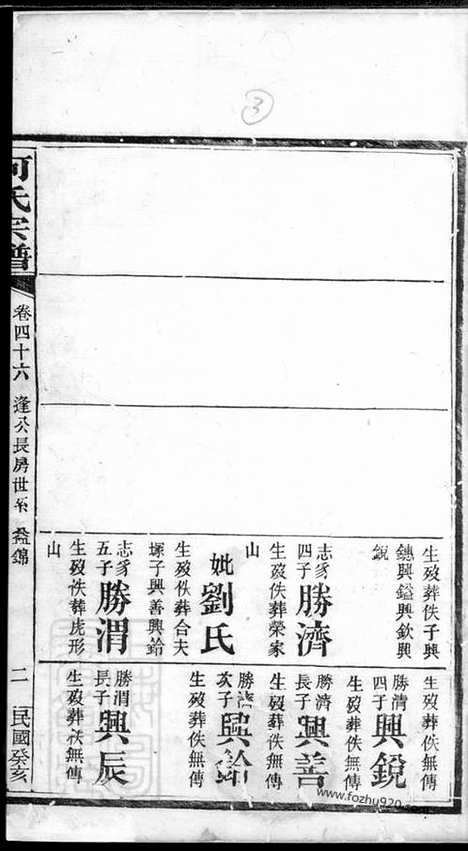 ③
生歿葬佚子興
鏸興鎰興欽興
銳
志豸四子 勝濟
生歿佚葬榮家
山
妣劉氏
生歿佚葬合夫
塚子興善興鈴
志豸五子 勝渭
生歿佚葬虎形
山
生歿葬佚無傳
勝渭四子 興銳
生歿葬佚無傳
勝濟長子 興善
生歿葬佚無傳
勝濟次子 興鈴
生歿葬佚無傳
勝渭長子 興辰
生歿葬佚無傳
何氏宗譜
卷四十六 逢公長房世系 益錦
二
民國癸亥
www.fozhu920.com